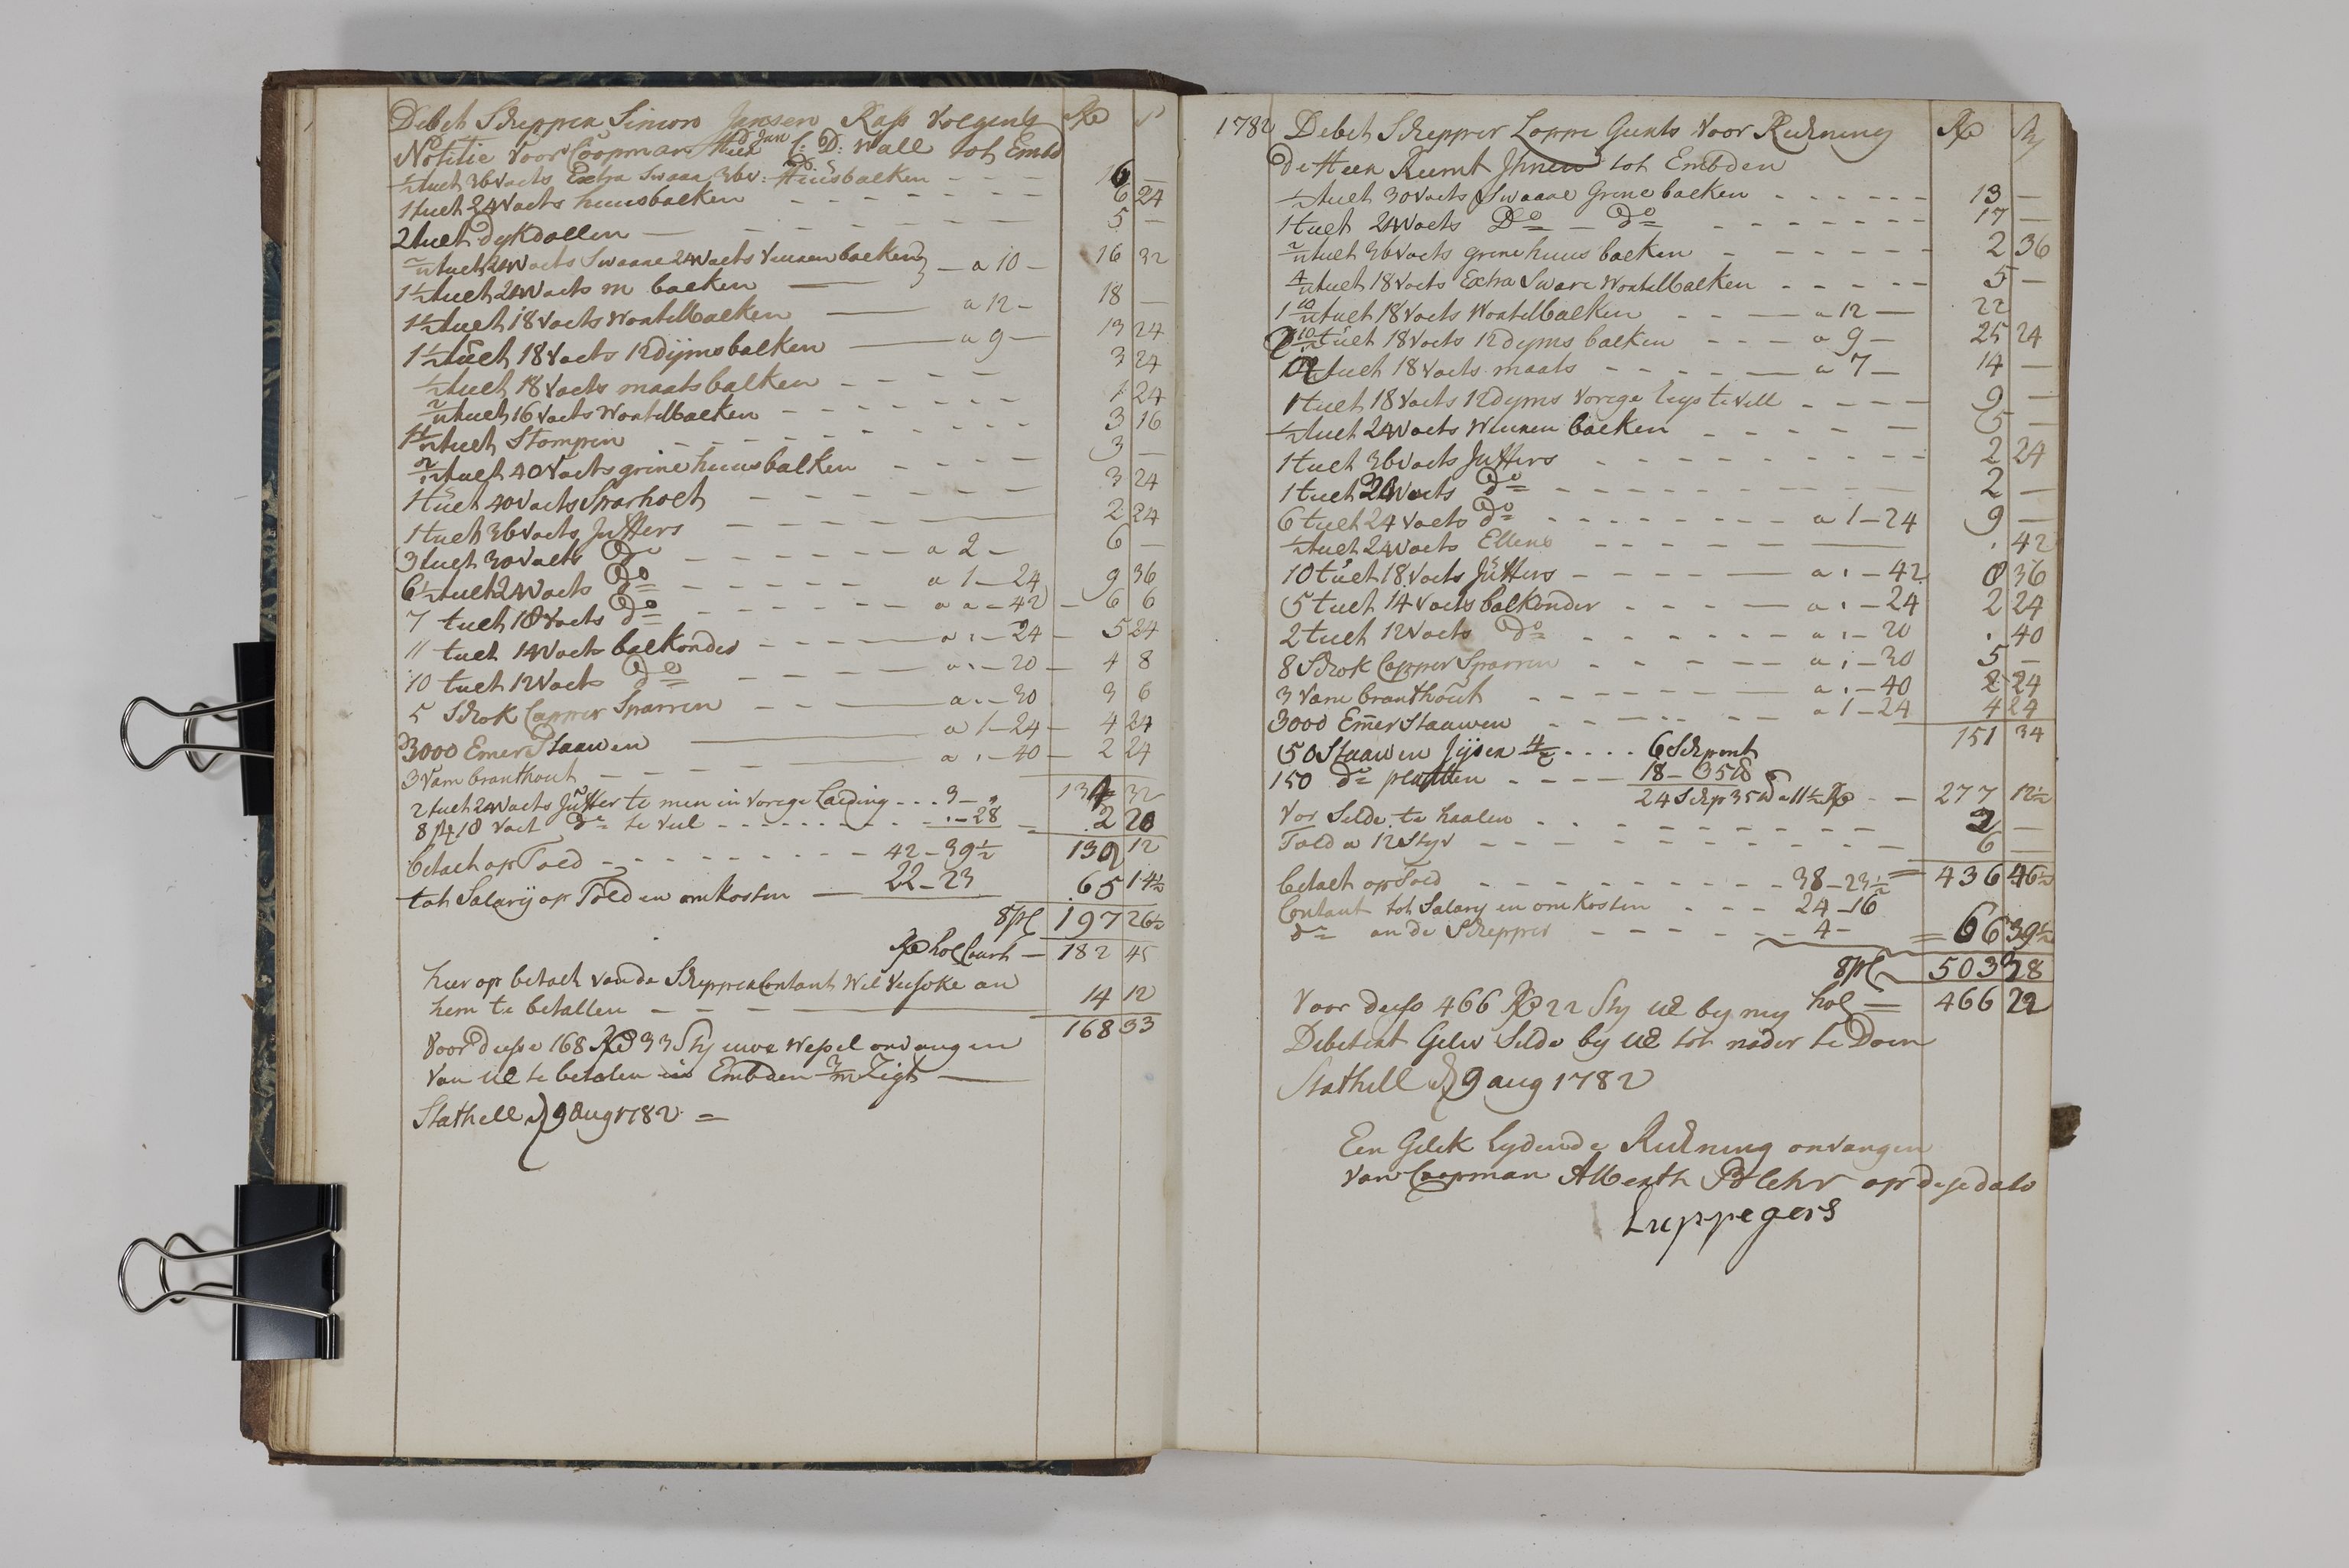 Debet Schepper Simon Jansen Kass Volgents R S
Notitie Voor Coopman Heer Jan C: D: Wall tot Embd
½ tuelt 36 Voets Extra Swaare 36v: Huusbalken - - - 16 —
1 tuelt 24 Voets huusbalken - - - - - - 6 24
2 tuelt dykdollen — - - - - - 5 —
2/12 tuelt 24 Voets Swaare 24 Voets Vuurenbalken
1½ tuelt 24 Voets m balken — a 10 — 16 32
1½ tuelt 18 Voets Wrakelbalken — a 12 - 18 —
1½ tuelt 18 Voets 12 dijms balken — a 9 — 13 24
½ tuelt 18 Voets maats balken - - - - 3 24
2/12 tuelt 16 Voets balken - - - - - 1 24
tuelt Stompen - - - - - - 3 16
2/12 tuelt 40 Voets grine huusbalken - - - - 3 —
1 tuelt 40 Voets Sparholt - - - - - 3 24
1 tuelt 36 Voets Jufters - - - - 2 24
3 tuelt 30 Voets do - - - - - a 2 - 6 —
6½ tuelt 24 Voets do - - - - - a 1 - 24 9 36
7 tuelt 18 Voets do - - - - - a " - 42 - 6 6
11 tuelt 14 Voets balkonder - - - — a " - 24 - 5 24
10 tuelt 12 Voets do - - - - — a " - 20 - 4 8
5 Schok Capper Sparren - - — a " - 30 3 6
3000 Emer Staaven — a 1 - 24 - 4 24
3 Vam branthout - - - — a " - 40 - 2 24
2 tuelt 24 Voets Jufter te men in Vorege Lading - - - 3 - " 134 32
8 18 Voet do te vul - - - - - - - " - 28 = 2 20
betaelt op Told - - - - - - - - 42 - 39½ 132 12
tot Salarij op Told en omkosten — 22 - 23 65 14½
Spl 197 26½
R hol Court — 182 45
hier op betaelt van de Schepper Contant Wel an
hem te betallen - - - — 14 12
168 33
Voor diesse 168 R 33 Sty uwe Wessel ondangen
Van UE te betalen in Embden 2/m Zigt —
Stathell d 9 Aug 1782 =
1782 Debet Schepper Loppe Geerts Voor Rekning R Sty
De Heer Reemt Jhnen tot Embden
½ tuelt 30 Voets Swaare Grine balken - - - - - - 13 —
1 tuelt 24 Voets Do - do - - - - - - - 17 —
2/12 tuelt 36 Voets grine huus balken - - - - - 2 36
4/12 tuelt 18 Voets Extra Sware balken - - - - - 5 —
1 10/12 tuelt 18 Voets balken - - - a 12 — 22
2 10/12 tuelt 18 Voets 12 dyms balken - - - a 9 - 25 24
2 tuelt 18 Voets maats - - - - — a 7 - 14 —
1 tuelt 18 Voets 12 dyms Vorege te vell - - - - 9 —
½ tuelt 24 Voets Vuuren balken - - - - - 5 —
1 tuelt 36 Voets Jufters - - - - - - - - - 2 24
1 tuelt 30 Voets do - - - - - - 2 —
6 tuelt 24 Voets do - - - - - - - a 1 - 24 9 —
½ tuelt 24 Voets Ellens - - - - - — " 42
10 tuelt 18 Voets Jufters - - - - — a " - 42 8 36
5 tuelt 14 Voets balkonder - - - - a " - 24 2 24
2 tuelt 12 Voets do - - - - - - a " - 20 " 40
8 Schok Capper Sparren - - - - — a " - 30 5 —
3 Vam branthout - - - - - - - a " - 40 2 24
3000 Emer Staaven - - - - - a 1 - 24 4 24
151 34
50 Staaven Jijsen - - - - 6 Schpont
150 do platten - - - - — 18 - 35 lb
24 Schp 35 lb a 11½ R - - 277 12½
Vor Selde te haalen - - - - - - - - - 2 —
Told a 12 Styv - - - - - - - - - - 6 —
betaelt op Told - - - - - - - - - - - 38 - 23½ = 436 46½
Contant tot Salary en om Kosten - - - 24 - 16
do an de Schepper - - - - - - 4 - = 66 39½
Spl 503 38
Voor desse 466 R 22 Sty UE by my hol = 466 22
Debeteert Gelev Selde by UE tot nader te Doen
Stathell d 9 aug 1782
Een Gelik Lydende Rekning onvangen
Van Coopman Alberth Blehr op dese dato
Luppe gers